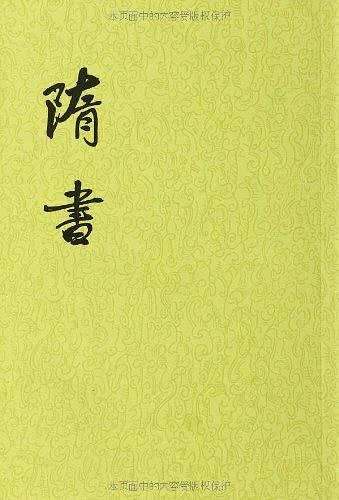 本页面中的内容受版权保护
隋書
本页面中的内容受版权保护